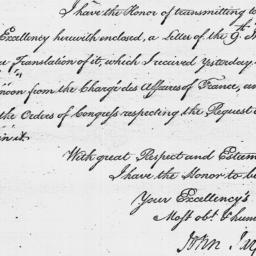 I have the Honor of transmitting to
Excellency herewith enclosed, a Letter of the 9th
a Translation of it, which I received Yesterday
noon from the Chargé des Affaires of France, an
the Orders of Congress respecting the Request
in it.
With great Respect and Esteem
I have the Honor to be
Your Excellency's
Most obt. & hum
John Jay